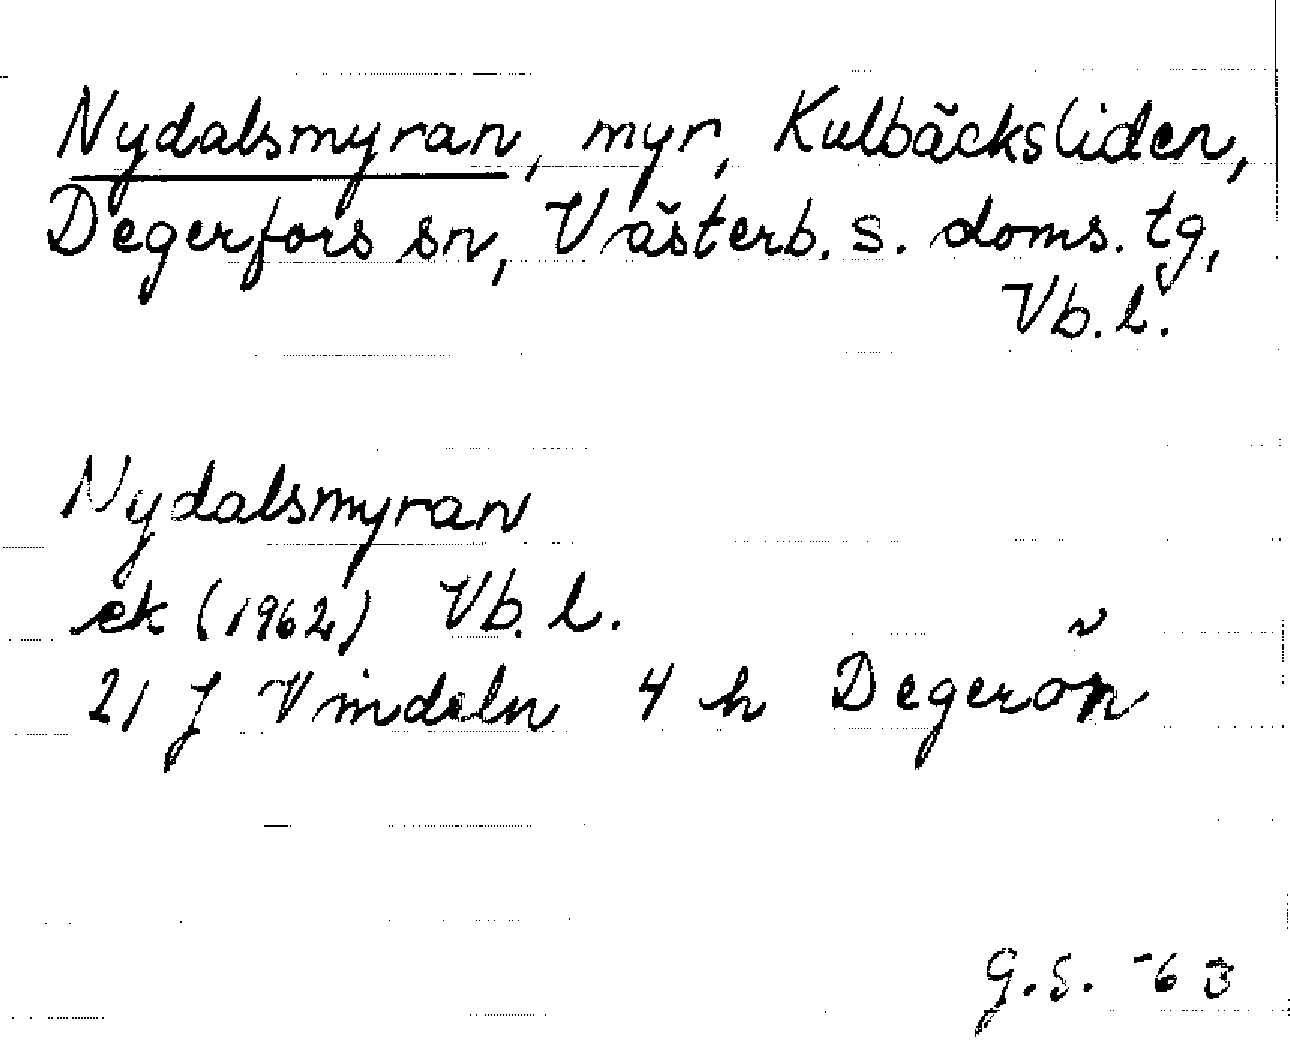 Nydalsmyran, myr, Kulbäcksliden,
Degerfors sn, Västerb. s. doms. tg,
Vb. l.
Nydalsmyran
ek (1962) Vb. l.
21 J Vindeln 4 h Degerön
G.S. -63